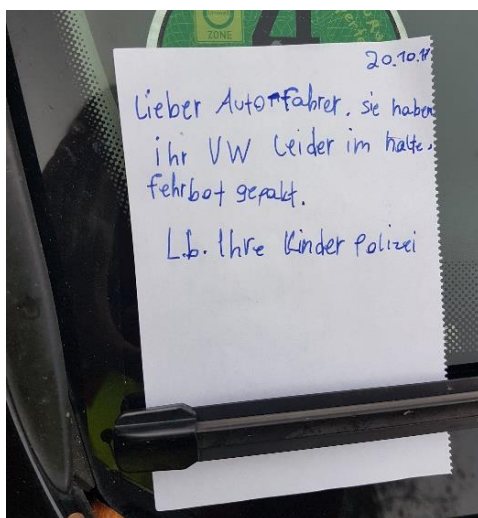 ZONE
4
20.10.18
Lieber Autofahrer. sie haben
ihr VW leider im halte.
fehrbot gepakt.
L.b. Ihre Kinder Polizei